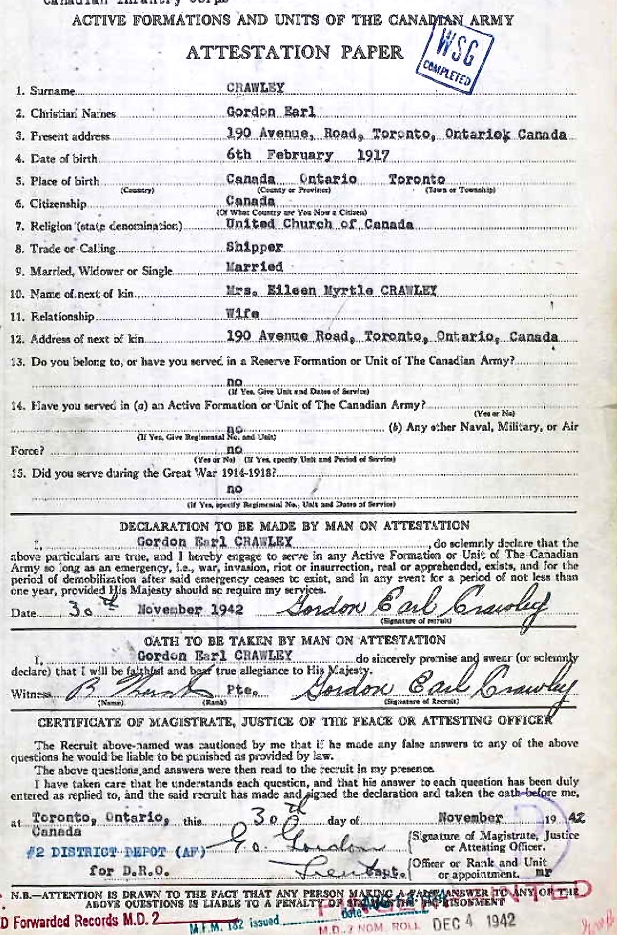 Canadian Infantry Corps
ACTIVE FORMATIONS AND UNITS OF THE CANADIAN ARMY
ATTESTATION PAPER
WSG
COMPLETED
1. Surname CRAWLEY
2. Christian Names Gordon Earl
3. Present address 190 Avenue, Road, Toronto, Ontario, Canada
4. Date of birth 6th February 1917
5. Place of birth Canada Ontario Toronto
(Country) (County or Province) (Town or Township)
6. Citizenship Canada
(Of What Country are You Now a Citizen)
7. Religion (state denomination) United Church of Canada
8. Trade or Calling Shipper
9. Married, Widower or Single Married
10. Name of next of kin Mrs. Eileen Myrtle CRAWLEY
11. Relationship Wife
12. Address of next of kin 190 Avenue Road, Toronto, Ontario, Canada
13. Do you belong to, or have you served in a Reserve Formation or Unit of The Canadian Army?
no
(If Yes, Give Unit and Dates of Service)
14. Have you served in (a) an Active Formation or Unit of The Canadian Army?
(Yes or No)
no (b) Any other Naval, Military, or Air
(If Yes, Give Regimental No. and Unit)
Force? no
(Yes or No) (If Yes, specify Unit and Period of Service)
15. Did you serve during the Great War 1914-1918?
no
(If Yes, specify Regimental No., Unit and Dates of Service)
DECLARATION TO BE MADE BY MAN ON ATTESTATION
I, Gordon Earl CRAWLEY, do solemnly declare that the
above particulars are true, and I hereby engage to serve in any Active Formation or Unit of The Canadian
Army so long as an emergency, i.e., war, invasion, riot or insurrection, real or apprehended, exists, and for the
period of demobilization after said emergency ceases to exist, and in any event for a period of not less than
one year, provided His Majesty should so require my services.
Date 30th November 1942 Gordon Earl Crawley
(Signature of recruit)
OATH TO BE TAKEN BY MAN ON ATTESTATION
I, Gordon Earl CRAWLEY do sincerely promise and swear (or solemnly
declare) that I will be faithful and bear true allegiance to His Majesty.
Witness B Pte. Gordon Earl Crawley
(Name) (Rank) (Signature of Recruit)
CERTIFICATE OF MAGISTRATE, JUSTICE OF THE PEACE OR ATTESTING OFFICER
The Recruit above-named was cautioned by me that if he made any false answers to any of the above
questions he would be liable to be punished as provided by law.
The above questions and answers were then read to the recruit in my presence.
I have taken care that he understands each question, and that his answer to each question has been duly
entered as replied to, and the said recruit has made and signed the declaration and taken the oath before me,
at Toronto, Ontario, this 30th day of November 1942
Canada Gordon Signature of Magistrate, Justice
or Attesting Officer.
#2 DISTRICT DEPOT (AF)
for D.R.O. Lieut Capt. Officer or Rank and Unit
or appointment. mr
N.B.—ATTENTION IS DRAWN TO THE FACT THAT ANY PERSON MAKING A FALSE ANSWER TO ANY OF THE
ABOVE QUESTIONS IS LIABLE TO A PENALTY OF SIX MONTHS IMPRISONMENT
D Forwarded Records M.D. 2 M.F.M. 182 issued date M.D. 2 NOM. ROLL DEC 4 1942